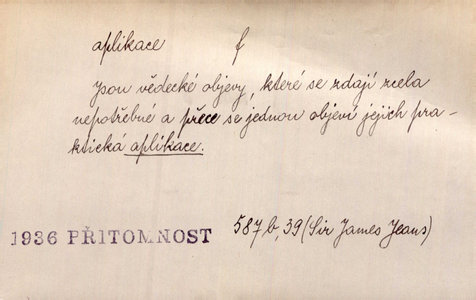 aplikace f
Jsou vědecké objevy, které se zdají zcela
nepotřebné a přece se jednou objeví jejich pra-
ktická aplikace.
1936 PŘÍTOMNOST 587b, 39 (Sir James Jeans)